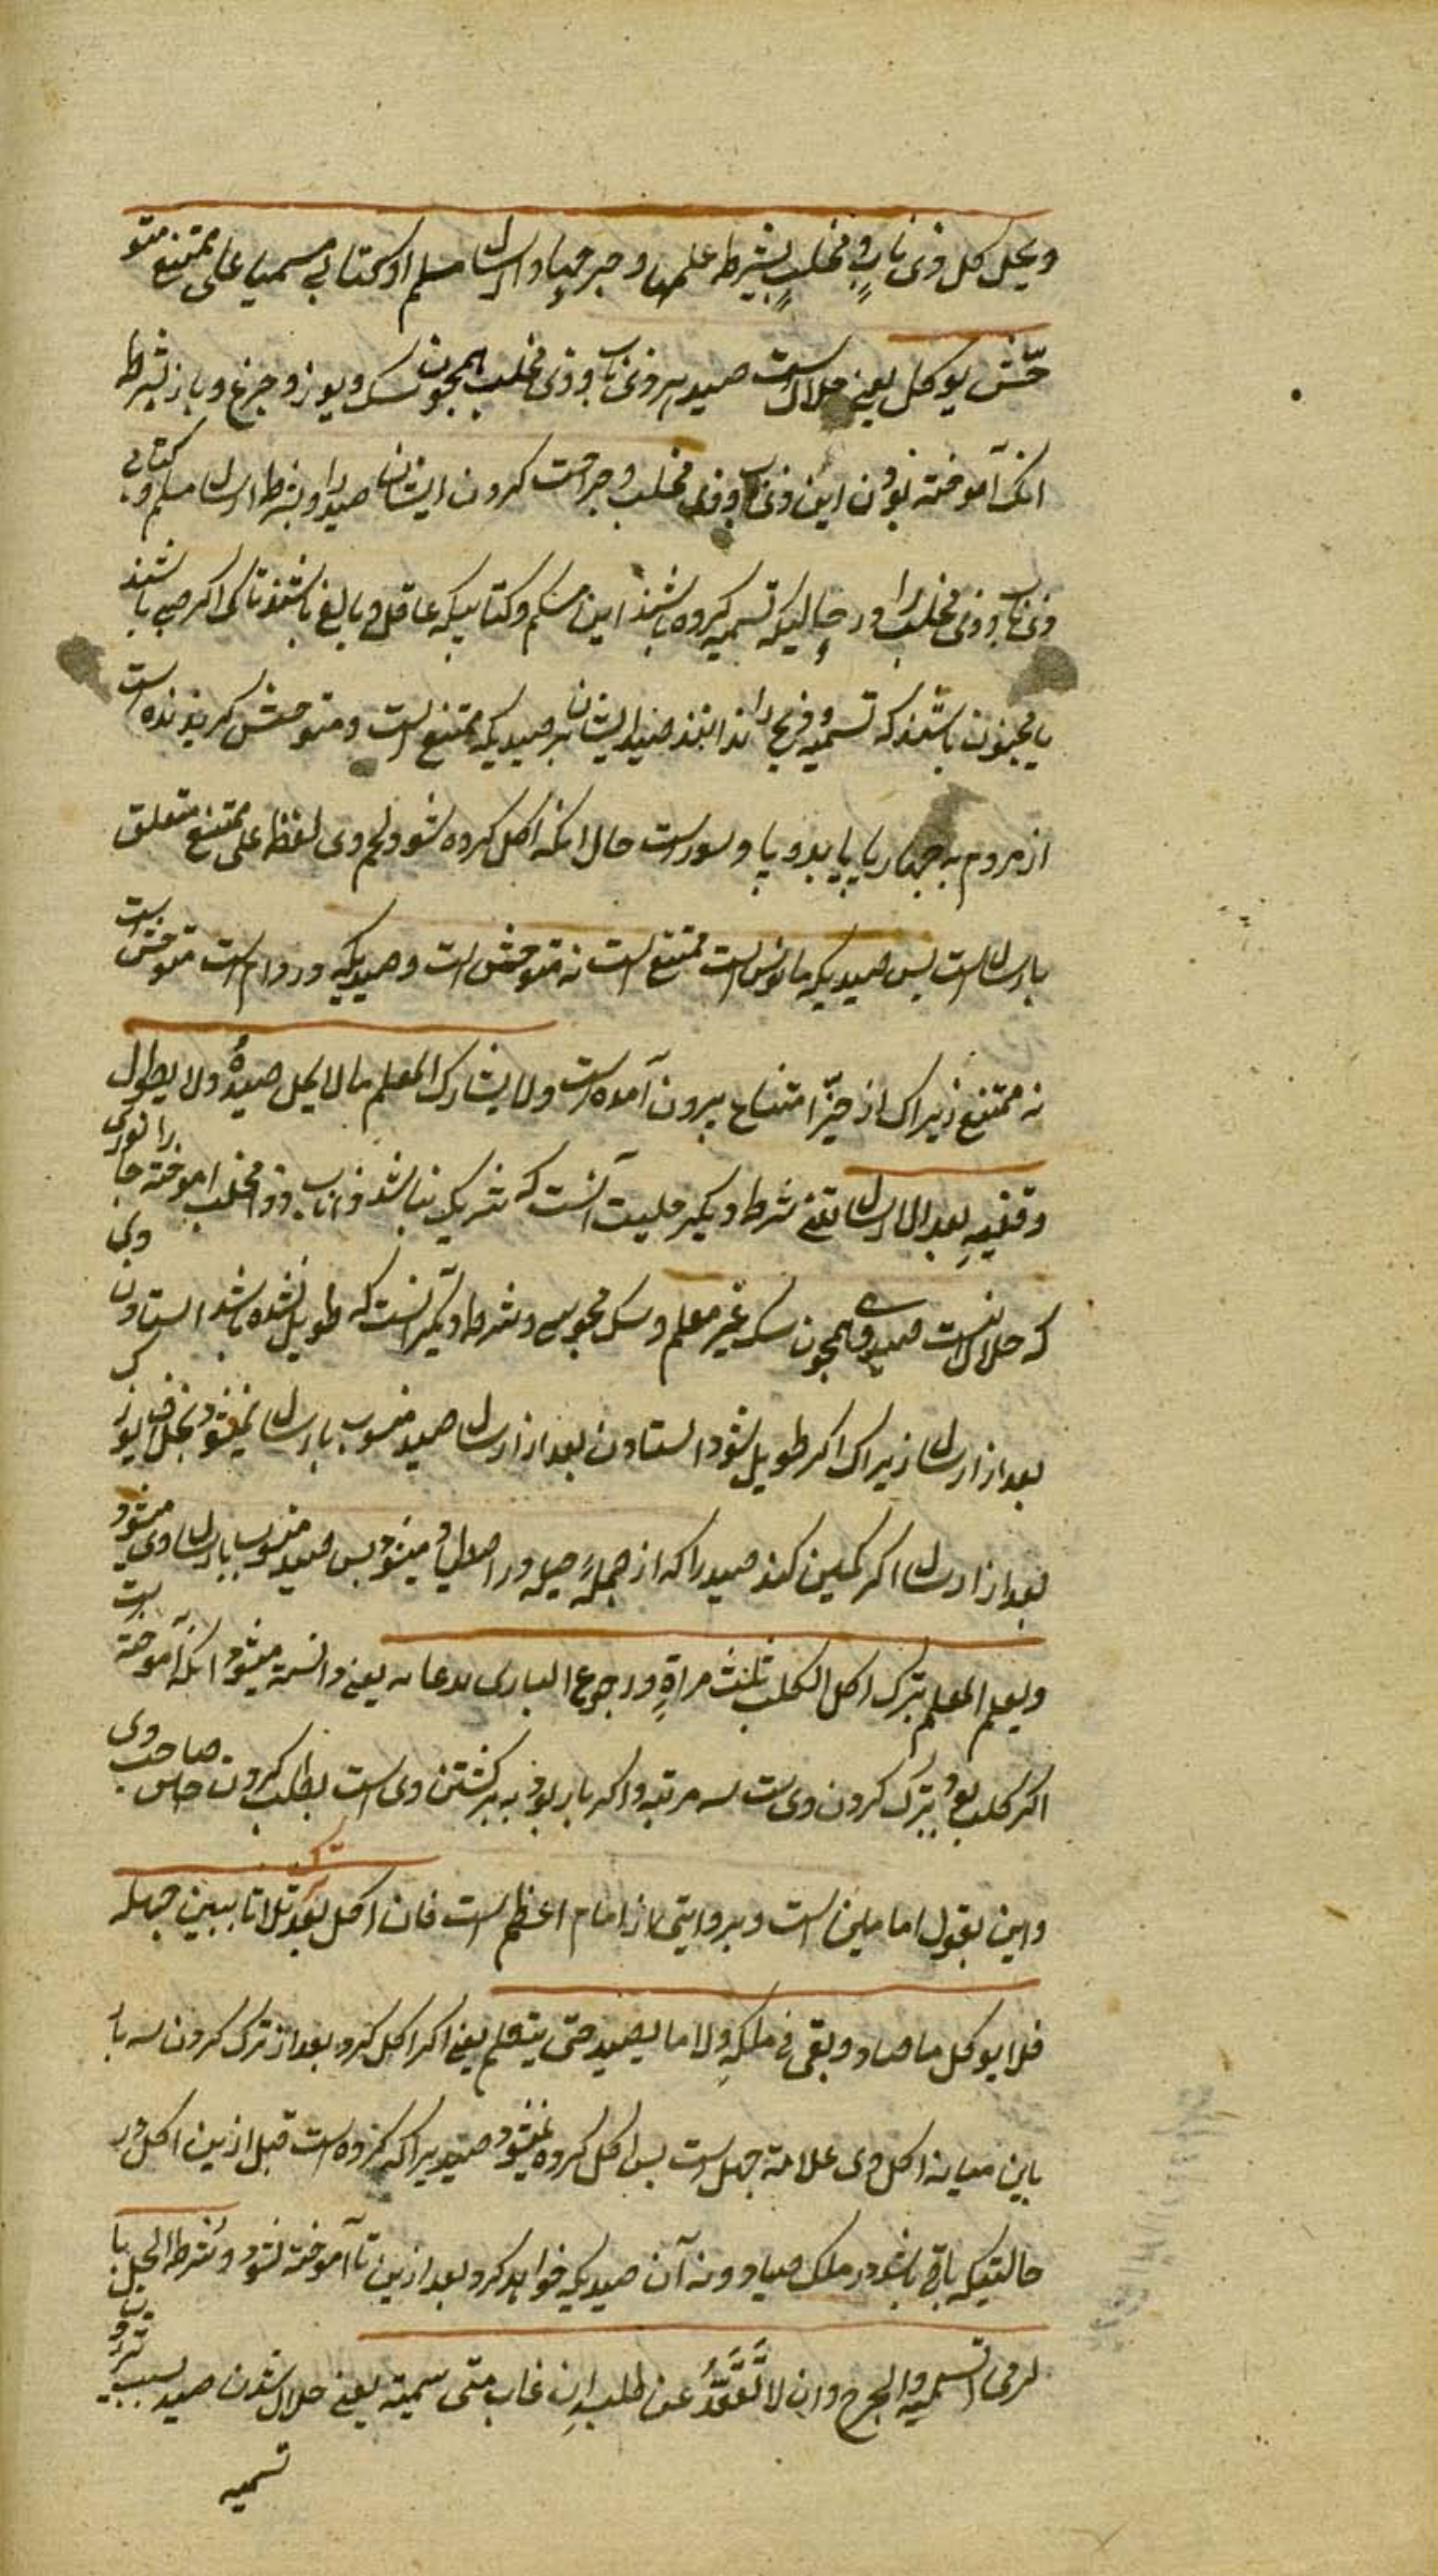 ویحل کل ذی ناب و مخلب بشرط علمهما و جرحهما و ارسال مسلم او کتابی مسمیا علی ممتنع متو
حش یوکل یعنی حلال است صید هر ذی ناب و ذی مخلب همچون سک و یوز و جرغ و باز بشرط
انک آموخته بودن این ذی ناب و ذی مخلب و جراحت کردن ایشان صید را و بشرط ارسال مسلم و کتابی
ذی ناب و ذی مخلب را در حالیکه تسمیه کرده باشند این مسلم و کتابیکه عاقل و بالغ باشند تا کی اکر صبی باشند
یا مجنون باشند که تسمیه و ذبح را ندانند صید ایشان بر صیدیکه ممتنع است و متوحش کریزنده است
از مردم به چهار پا یا بدو پا و سورست حال انکه اکل کرده شود لحم وی لفظ علی ممتنع متعلق
بارسال است پس صیدیکه مانوس است ممتنع است نه متوحش است و صیدیکه در دام است متوحش است
نه ممتنع زیراک از حیز امتناع بیرون آمده است ولا یشارک المعلم ما لا یحل صیده ولا یطول
وقفیه بعد الارسال یعنی شرط دیکر حلیت آنست که شریک نباشد ذا ناب و ذا مخلب اموخته جانوری را
که حلال نیست صید وی همچون سک غیر معلم و سک مجوسی و شرط دیکر آنست که طویل نشده باشد استادن وی
بعد از ارسال زیراک اکر طویل شود استادن بعد از ارسال صید منسوب بارسال نمیشود بخلاف یوز کی
بعد از ارسال اکر کمین کند صید را که از جمله حیله در اصطیاد میشود پس صید منسوب بارسال وی میشود
ویعلم المعلم بترک اکل الکلب ثلث مراة و رجوع البازی بدعائه یعنی دانسته میشود انکه آموخته است
اکر کلب بود بترک کردن وی ست سه مرتبه و اکر باز بود به برکشتن وی است بطلب کردن صاحب وی
واین بقول امامین است و بروایتی از امام اعظم است فان اکل بعد ترکه ثلاثا تبین جهله
فلا یوکل ما صاد و بقی فی ملکه ولا ما یصید حتی یتعلم یعنی اکر اکل کرد بعد از ترک کردن سه با
باین معاینه اکل وی علامة جهل است پس اکل کرده نمیشود صیدیرا که کرده است قبل ازین اکل در
حالتیکه باقی باشد در ملک صیاد و نه آن صیدیکه خواهد کرد بعد ازین تا آموخته شود و شرط الحل با
لرمی التسمیه والجرح وان لا تقعد عن طلبه ان غاب متی سمیته یعنی حلال شدن صید بسبب تیر
تسمیه